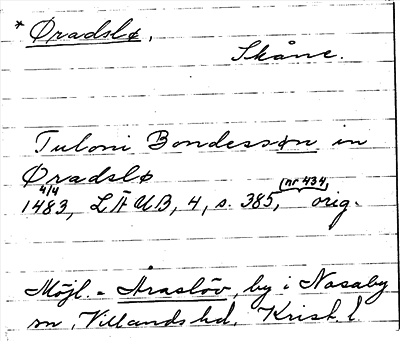 * Øradslø.
Skåne.
Tuloni Bondessøn in
Øradslø
4/4 (nr 434)
1483, LÄUB, 4, s. 385, orig.
Möjl. = Åraslöv, by i Nosaby
sn, Villands hd, Krist. l